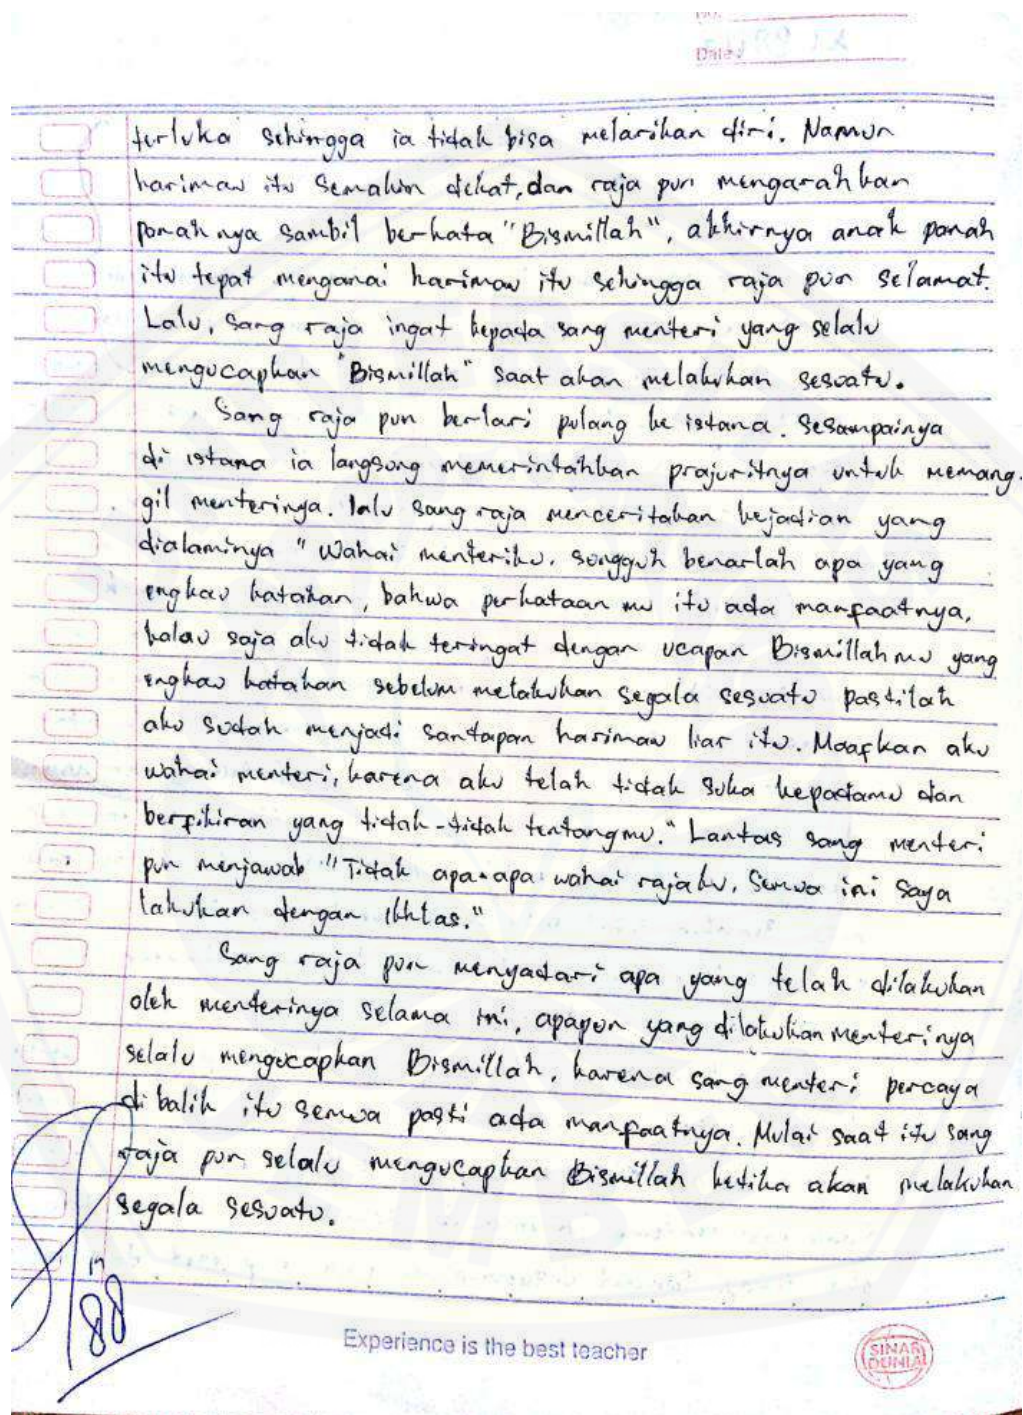 No.
Date:
terluka sehingga ia tidak bisa melarikan diri. Namun
harimau itu semakin dekat, dan raja pun mengarahkan
panah nya sambil berkata "Bismillah", akhirnya anak panah
itu tepat mengenai harimau itu sehingga raja pun selamat.
Lalu, sang raja ingat kepada sang menteri yang selalu
mengucapkan "Bismillah" saat akan melakukan sesuatu.
Sang raja pun berlari pulang ke istana. Sesampainya
di istana ia langsung memerintahkan prajuritnya untuk memang-
gil menterinya. lalu sang raja menceritakan kejadian yang
dialaminya "Wahai menteriku, sungguh benarlah apa yang
engkau katakan, bahwa perkataan mu itu ada manfaatnya,
kalau saja aku tidak teringat dengan ucapan Bismillah mu yang
engkau katakan sebelum melakukan segala sesuatu pastilah
aku sudah menjadi santapan harimau liar itu. Maafkan aku
wahai menteri, karena aku telah tidak suka kepadamu dan
berfikiran yang tidak-tidak tentangmu." Lantas sang menteri
pun menjawab "Tidak apa-apa wahai rajaku, semua ini saya
lakukan dengan ikhlas."
Sang raja pun menyadari apa yang telah dilakukan
oleh menterinya selama ini, apapun yang dilakukan menterinya
selalu mengucapkan Bismillah, karena sang menteri percaya
di balik itu semua pasti ada manfaatnya. Mulai saat itu sang
raja pun selalu mengucapkan Bismillah ketika akan melakukan
segala sesuatu.
88
Experience is the best teacher
SINAR
DUNIA